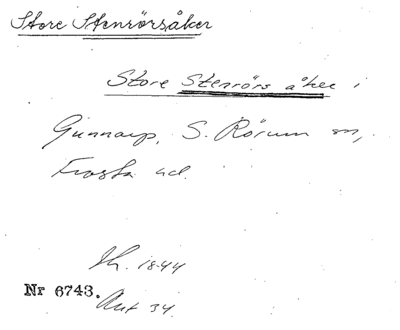 Store Stenrörsåker
Store Stenrörs åker i
Gunnarp, S. Rörum sn,
Frosta hd.
Sk. 1844
Nr 6743.
Akt 34